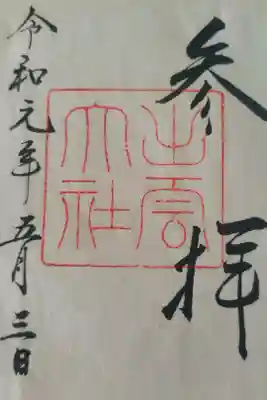 参拝
出雲
大社
令和元年 五月 三日